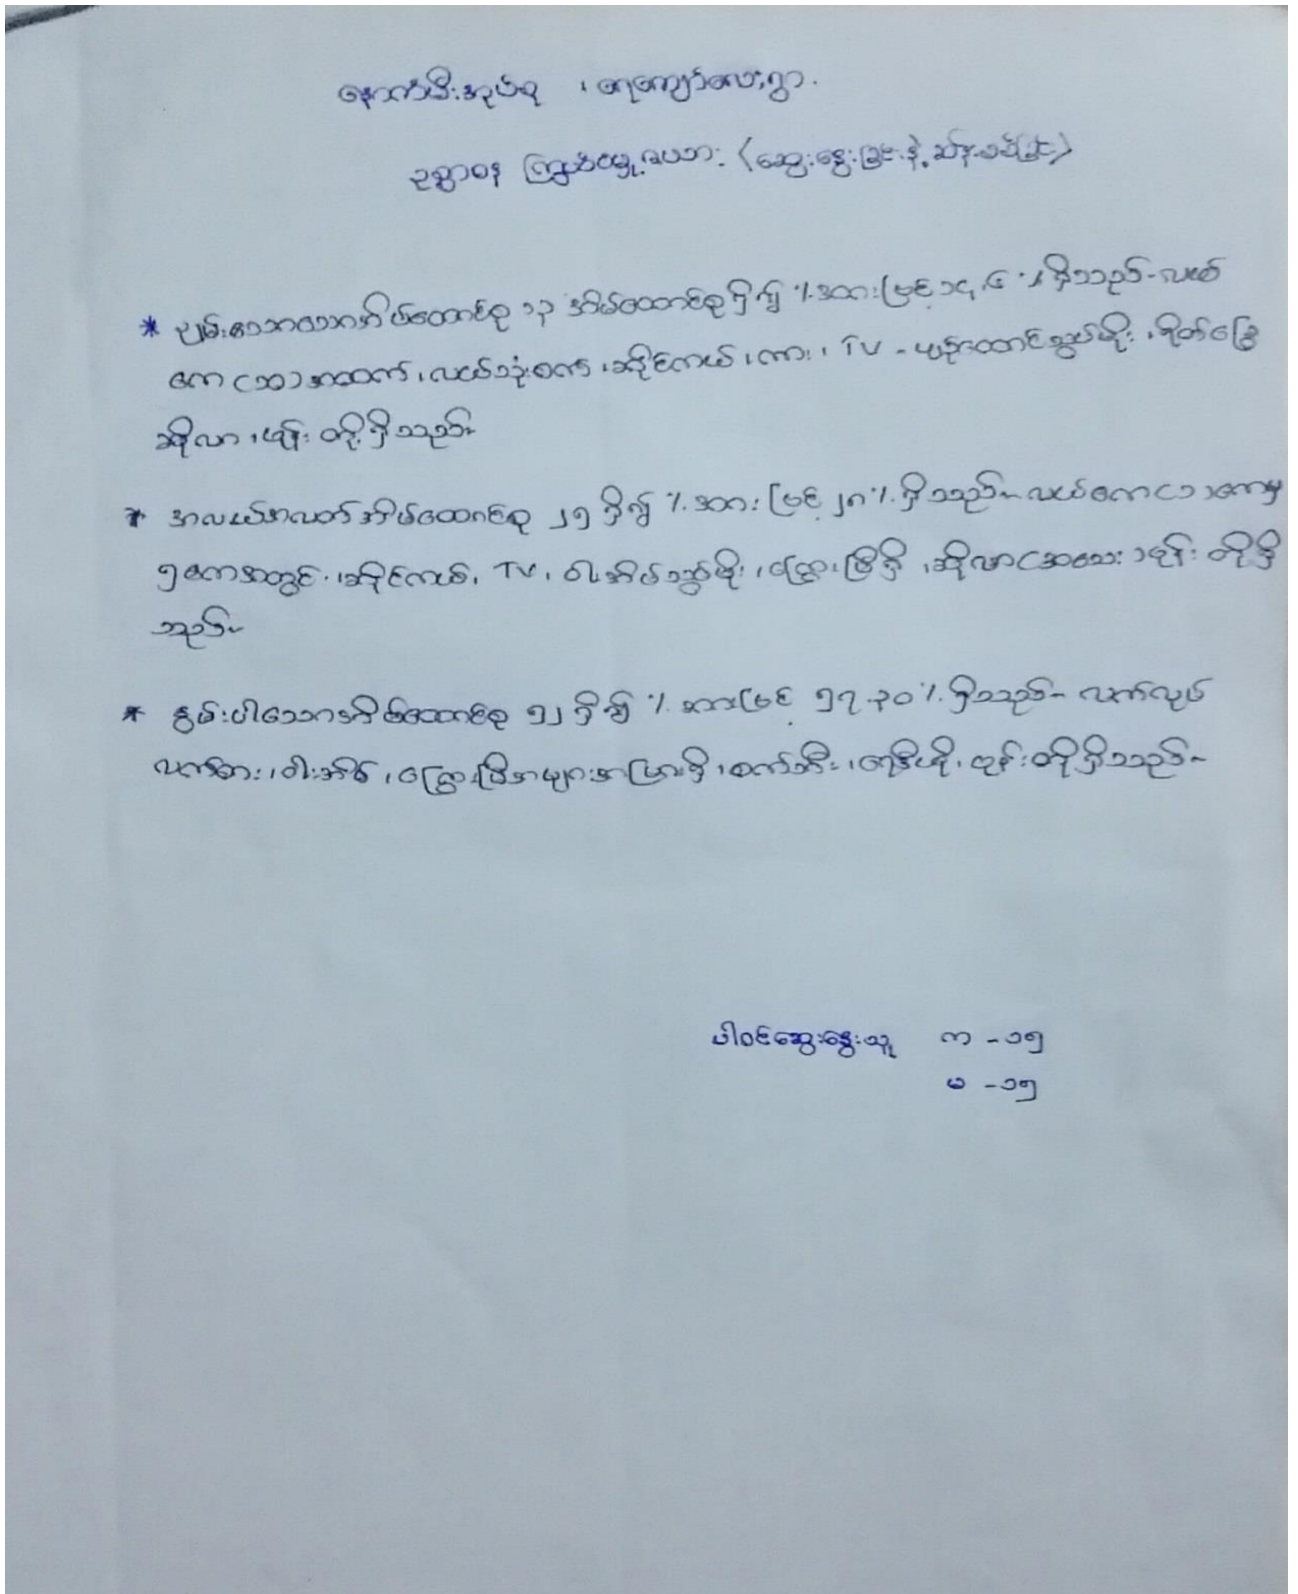 နောက်မီးအုပ်စု ၊ ရေကျော်လေးရွာ.
ဥစ္စာဓန ကြွယ်ဝမှု့ဇယား (ဆွေးနွေးခြင်းနဲ့ ဆန်းစစ်ခြင်း)
* ချမ်းသောသောအိမ်ထောင်စု ၁၃ အိမ်ထောင်စုရှိ၍ % အားဖြင့် ၁၄.၆ % ရှိသည်- လယ်
ဧက (၁၀) အထက် ၊ လယ်သုံးစက် ၊ ဆိုင်ကယ် ၊ ကား ၊ TV - ပျဉ်ထောင်သွပ်မိုး ၊ တိုက်ခြေ
ဆိုလာ ၊ ဖုန်း တို့ရှိသည်-
* အလယ်အလတ်အိမ်ထောင်စု ၂၅ ရှိ၍ % အား ဖြင့် ၂၈ % ရှိသည်- လယ်ဧက (၁) ဧကမှ
၅ ဧကအတွင်း ၊ ဆိုင်ကယ် ၊ TV ၊ ဝါးအိမ်သွပ်မိုး ၊ ကြွေးမြီရှိ ၊ ဆိုလာ (အသေး) ဖုန်း တို့ရှိ
သည်-
* နွမ်းပါးသောအိမ်ထောင်စု ၅၂ ရှိ၍ % အားဖြင့် ၅၇.၃၀ % ရှိသည်- လက်လုပ်
လက်စား ၊ ဝါးအိမ် ၊ ကြွေးမြီအများအပြားရှိ ၊ စက်ဘီး ၊ ရေဒီယို ၊ ဖုန်း တို့ရှိသည်-
ပါဝင်ဆွေးနွေးသူ က - ၁၅
မ - ၁၅